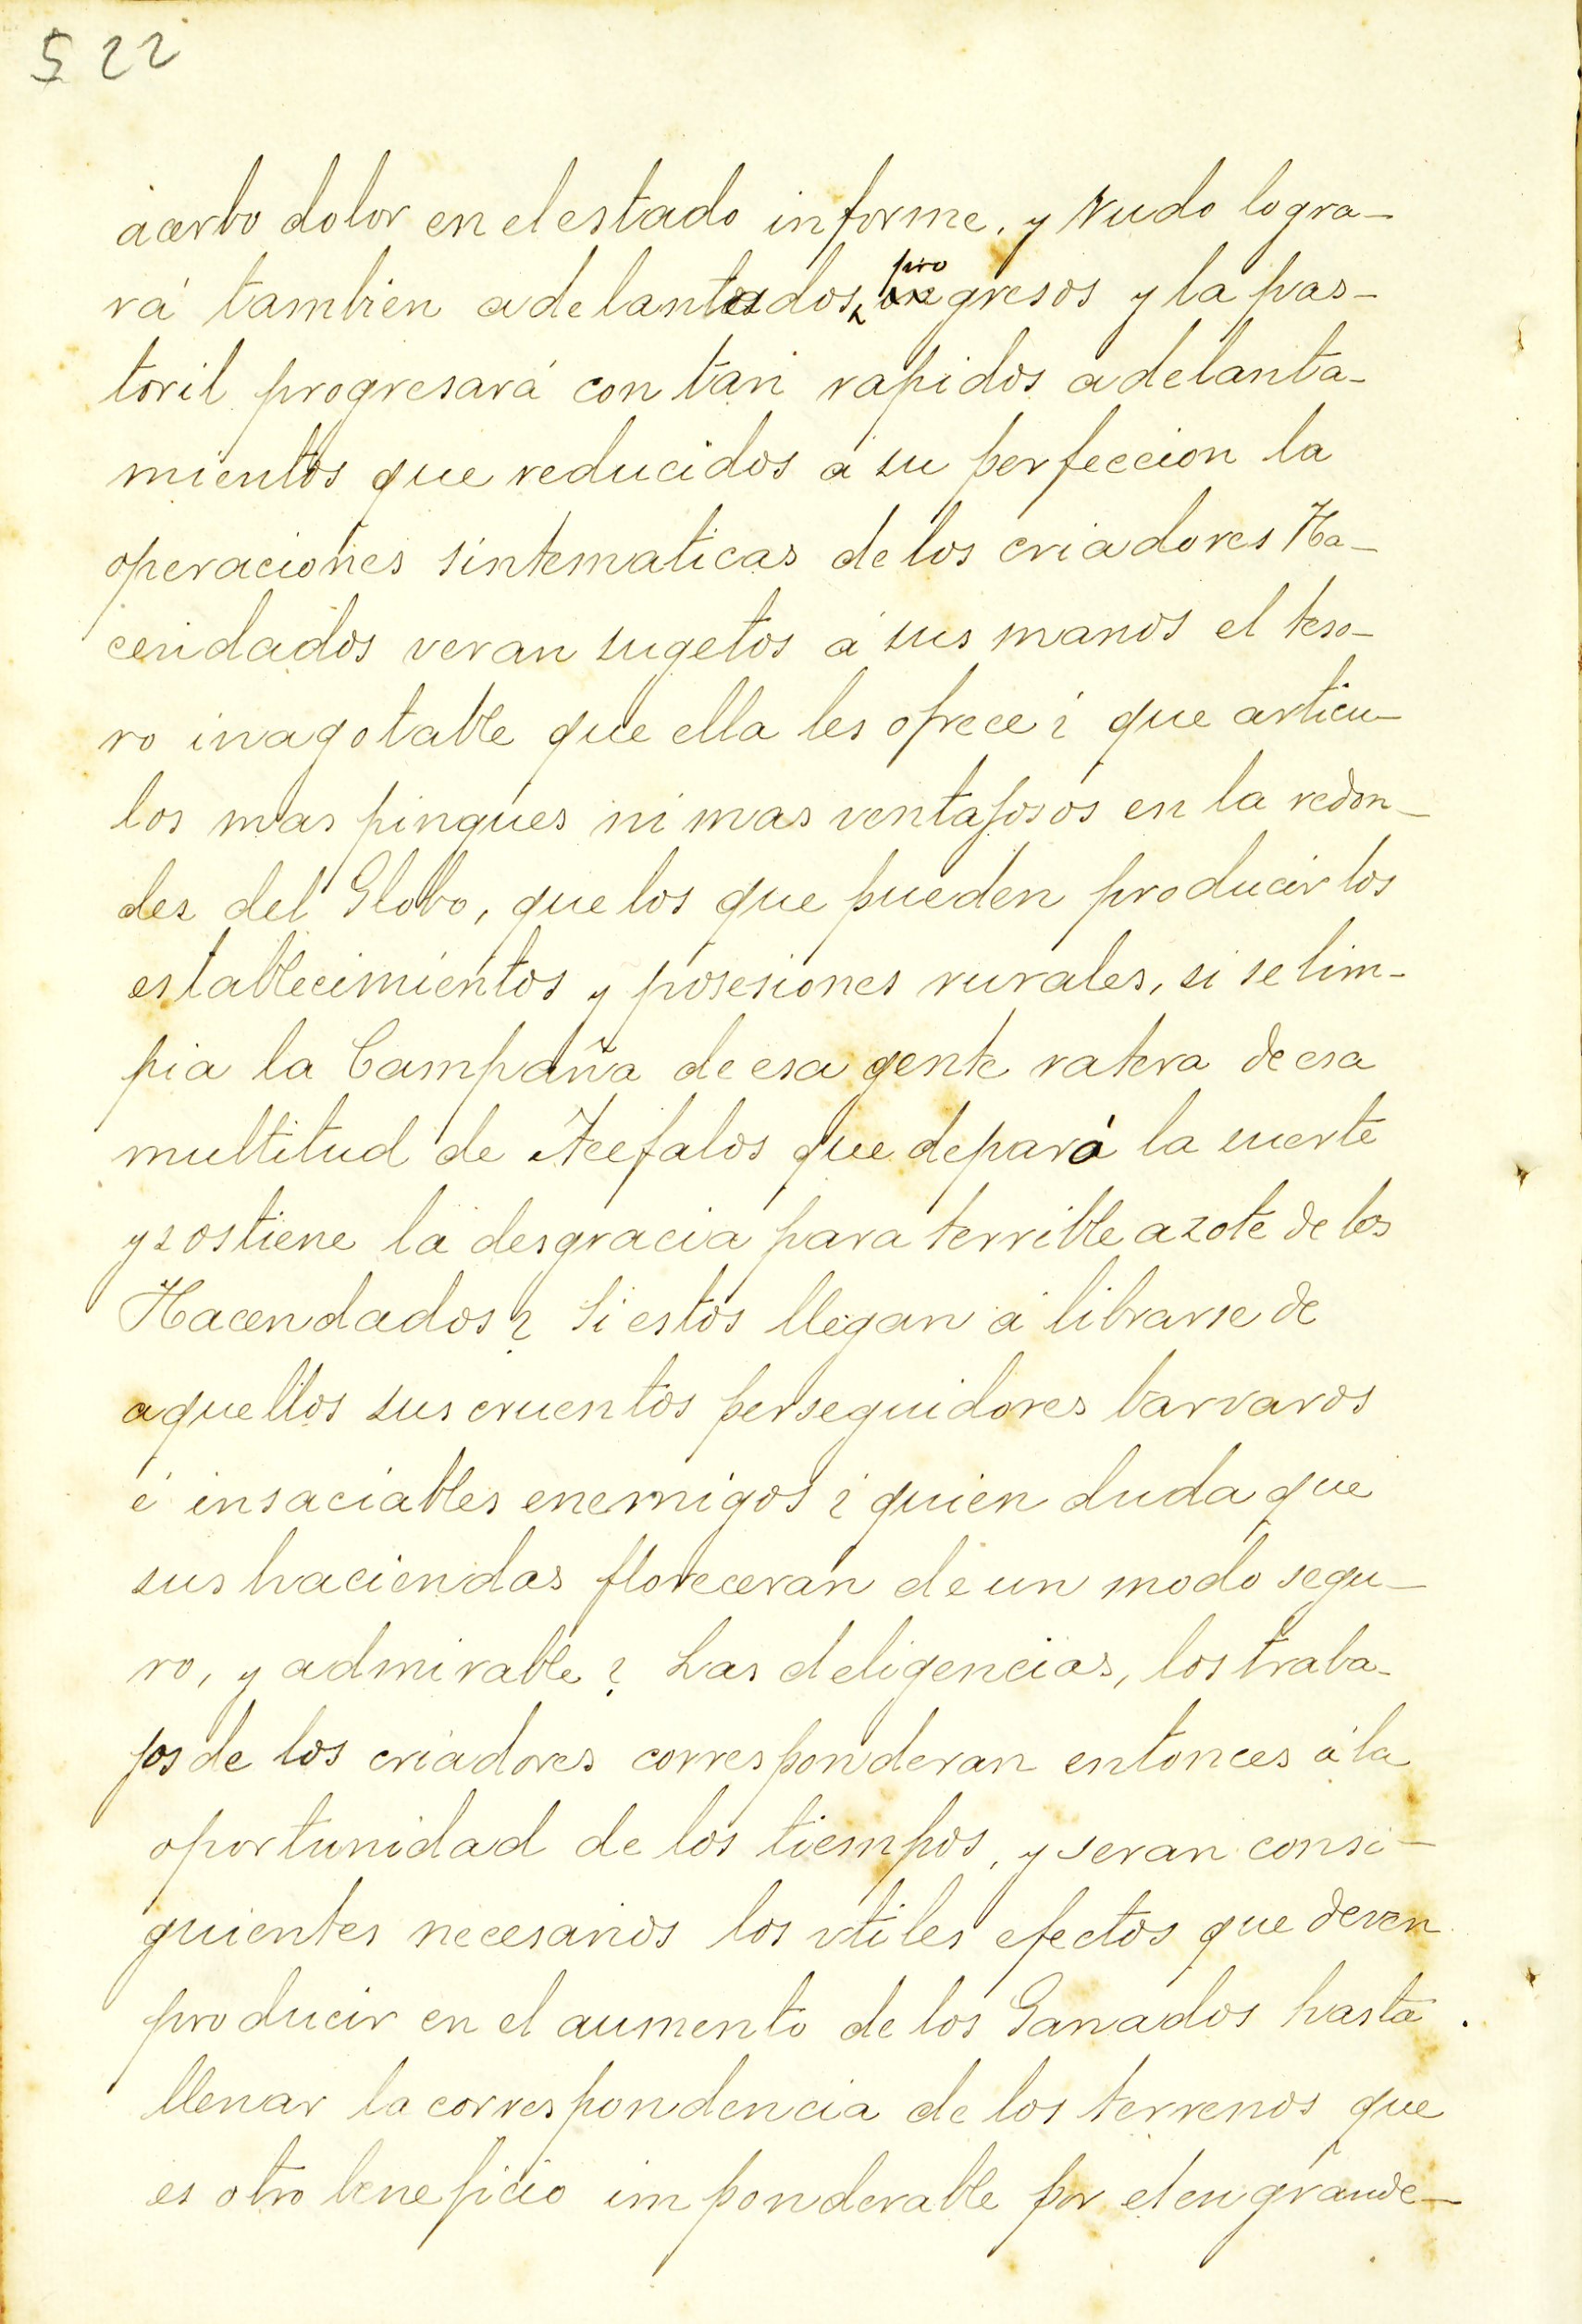 522
acerbo dolor en el estado informe, y rudo logra-
rá tambien adelantados, progresos y la pas-
toril progresará con tan rapidos adelanta-
mientos que reducidos á su perfeccion la
operaciones sintematicas de los criadores Ha-
cendados veran sugetos á sus manos el teso-
ro inagotable que ella les ofrece ¿ que articu-
los mas pingues ni mas ventajosos en la redon-
dez del Globo, que los que pueden producir los
establecimientos y posesiones rurales, si se lim-
pia la Campaña de esa gente ratera de esa
multitud de Acefalos que depará la suerte
y sostiene la desgracia para terrible azote de los
Hacendados? Si estos llegan á librarse de
aquellos sus cruentos perseguidores barvaros
é insaciables enemigos ¿ quien duda que
sus haciendas floreceran de un modo segu-
ro, y admirable? Las deligencias, los traba-
jos de los criadores corresponderan entonces á la
oportunidad de los tiempos, y seran consi-
guientes necesarios los utiles efectos que deven
producir en el aumento de los Ganados hasta
llenar la correspondencia de los terrenos que
es otro beneficio imponderable por el engrande-